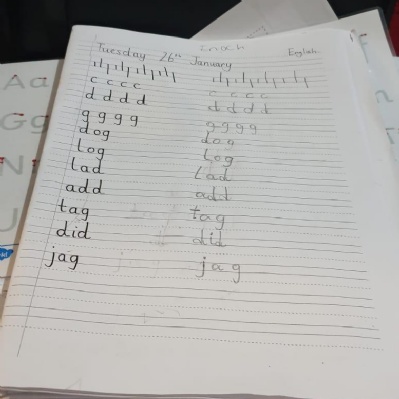 Inoch
English
Tuesday 26th January
c c c c c c c c
d d d d d d d d
g g g g g g g g
dog dog
Log Log
Lad Lad
add add
tag tag
did did
jag jag
Aa
Gg
N
U
n